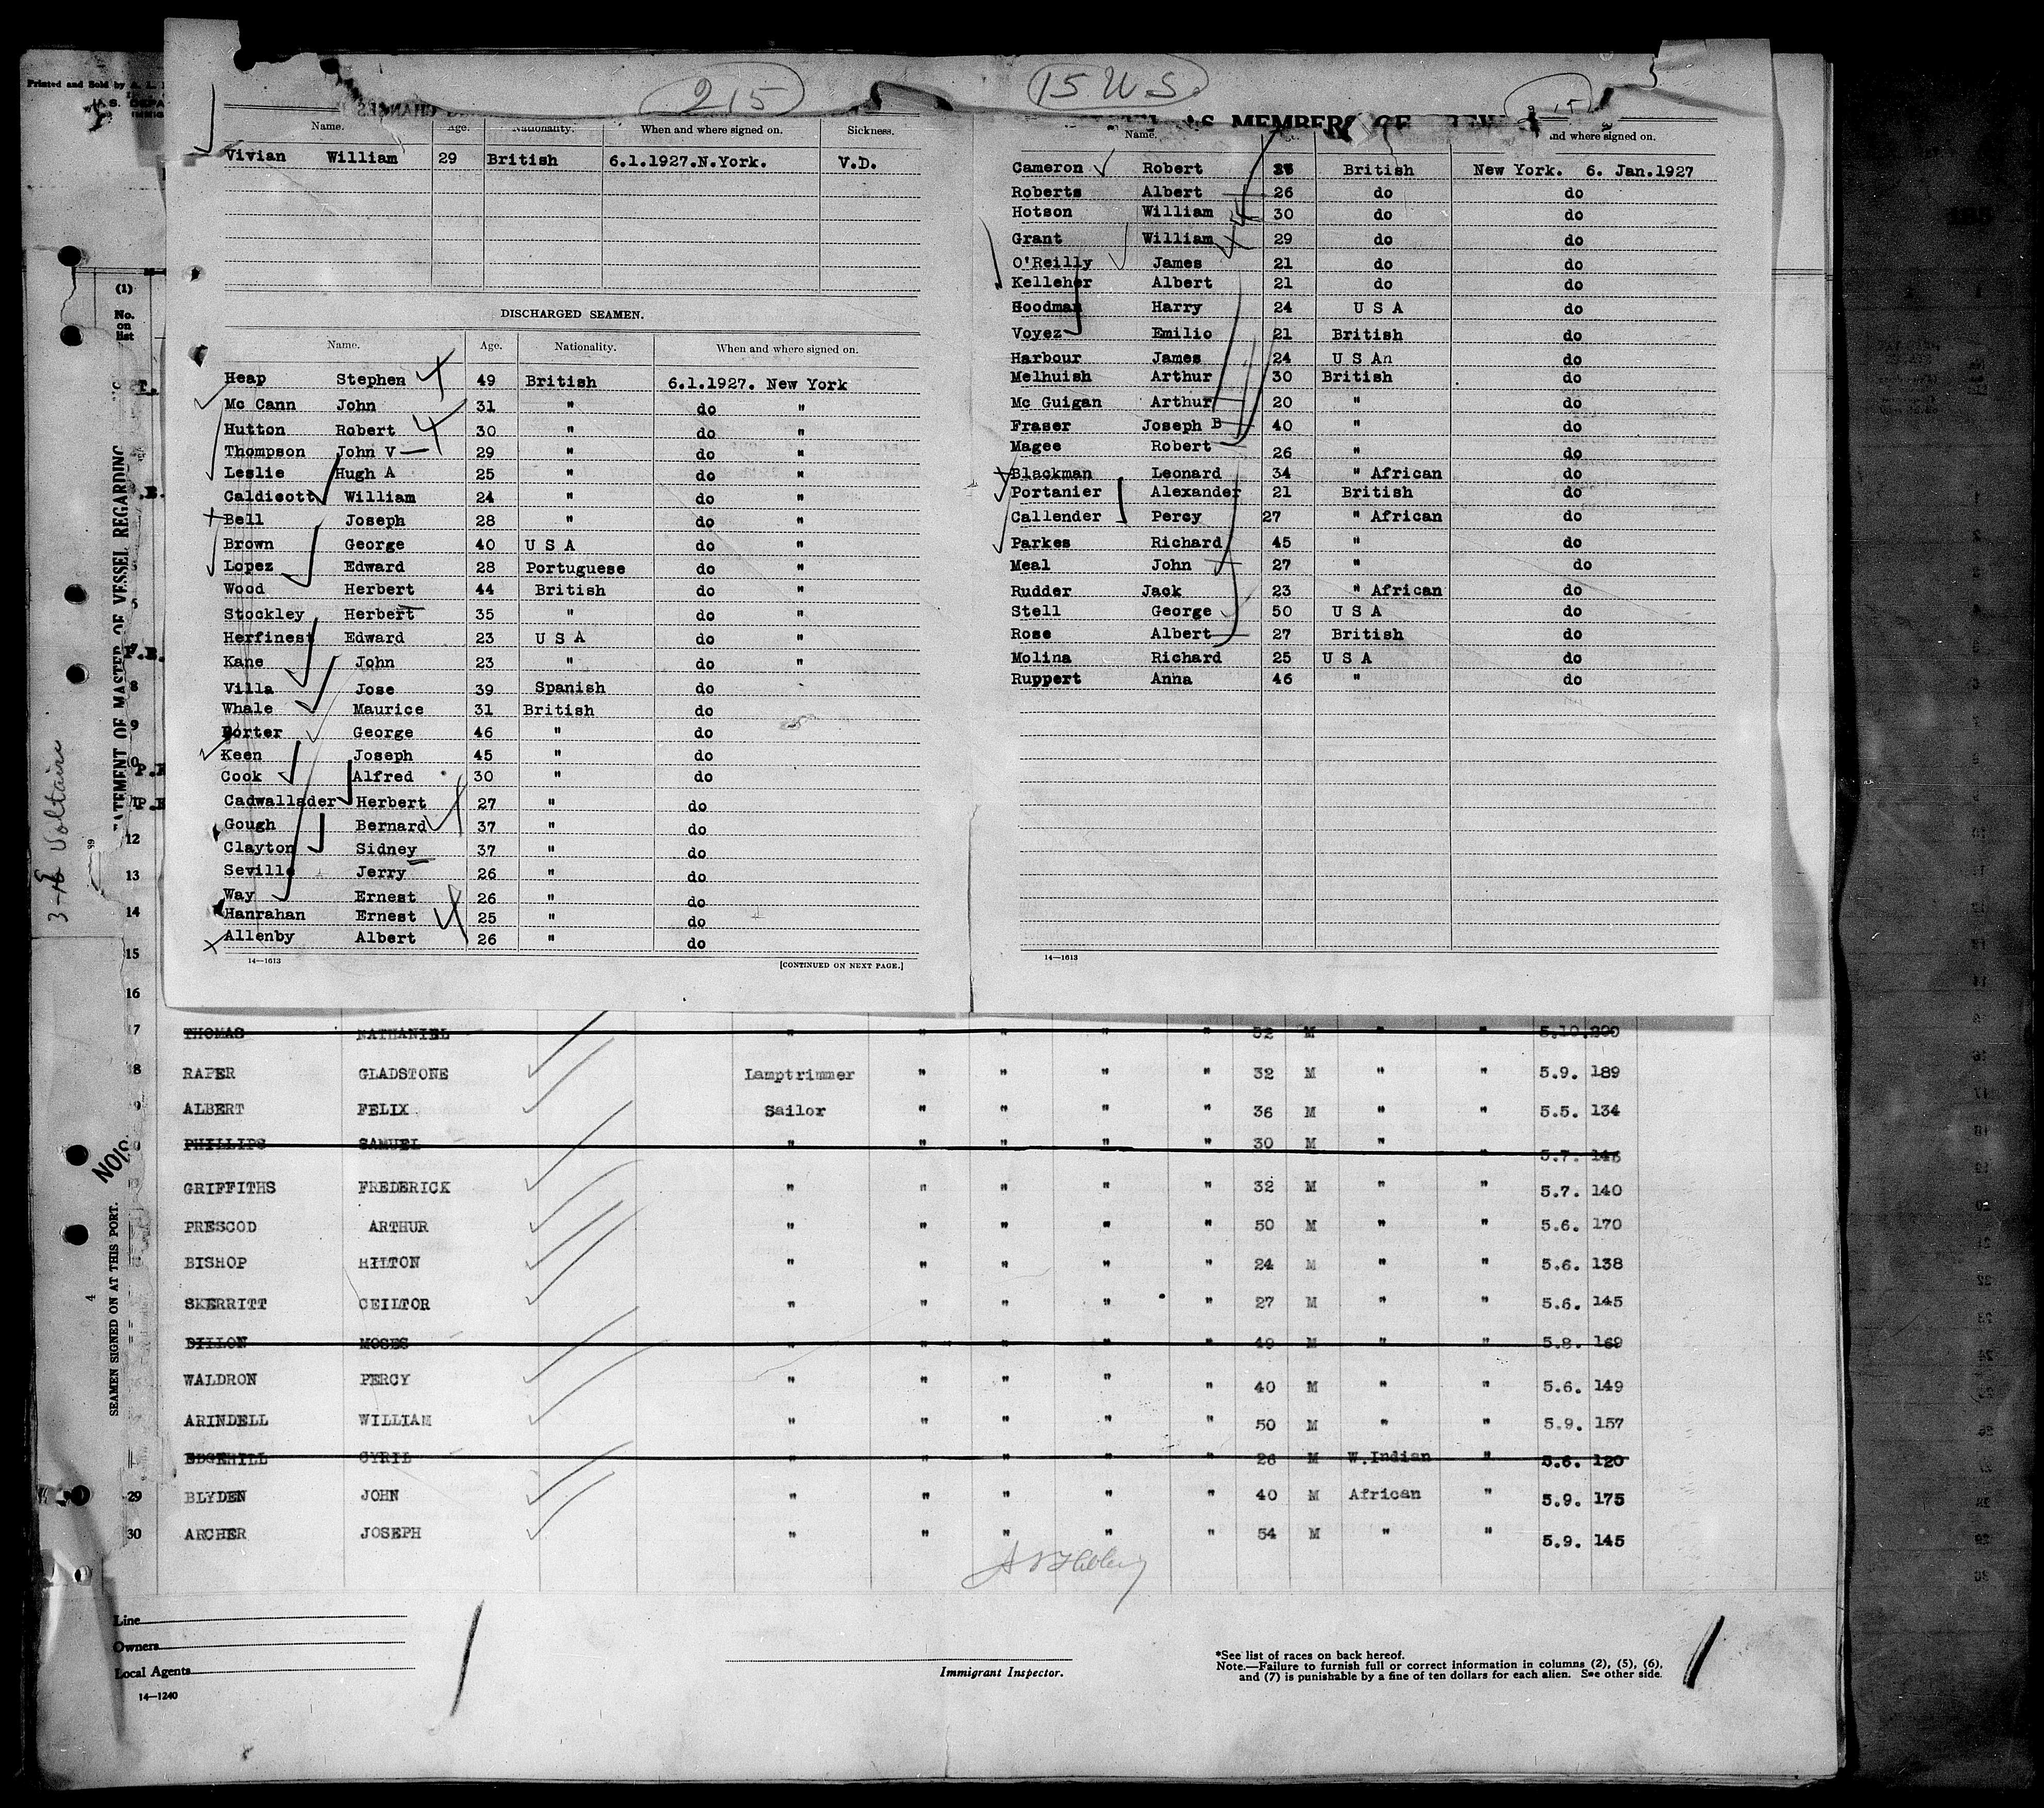 Printed and Sold by
215
Name. Age. Nationality. When and where signed on. Sickness.
Vivian William 29 British 6.1.1927.N.York. V.D.
DISCHARGED SEAMEN.
Name. Age. Nationality. When and where signed on.
Heap Stephen 49 British 6.1.1927. New York
Mc Cann John 31 " do "
Hutton Robert 30 " do "
Thompson John V 29 " do "
Leslie Hugh A 25 " do "
Caldicott William 24 " do "
Bell Joseph 28 " do "
Brown George 40 U S A do "
Lopez Edward 28 Portuguese do "
Wood Herbert 44 British do "
Stockley Herbert 35 " do "
Herfinest Edward 23 U S A do "
Kane John 23 " do "
Villa Jose 39 Spanish do
Whale Maurice 31 British do
Porter George 46 " do
Keen Joseph 45 " do
Cook Alfred 30 " do
Cadwallader Herbert 27 " do
Gough Bernard 37 " do
Clayton Sidney 37 " do
Seville Jerry 26 " do
Way Ernest 26 " do
Hanrahan Ernest 25 " do
Allenby Albert 26 " do
14—1613 [CONTINUED ON NEXT PAGE.]
15 U S.
AS MEMBERS OF CREW
Name. and where signed on.
Cameron Robert British New York. 6. Jan.1927
Roberts Albert 26 do do
Hotson William 30 do do
Grant William 29 do do
O'Reilly James 21 do do
Kelleher Albert 21 do do
Goodman Harry 24 U S A do
Voyez Emilio 21 British do
Harbour James 24 U S An do
Melhuish Arthur 30 British do
Mc Guigan Arthur 20 " do
Fraser Joseph B 40 " do
Magee Robert 26 " do
Blackman Leonard 34 " African do
Portanier Alexander 21 British do
Callender Percy 27 " African do
Parkes Richard 45 " do
Meal John 27 " do
Rudder Jack 23 " African do
Stell George 50 U S A do
Rose Albert 27 British do
Molina Richard 25 U S A do
Ruppert Anna 46 " do
14—1613
(1)
No.
on
list
STATEMENT OF MASTER OF VESSEL REGARDING
Voltaire
SEAMEN SIGNED ON AT THIS PORT.
4
5
8
9
12
13
14
15
16
THOMAS NATHANIEL " " " " " 52 M " " 5.10. 200
RAPER GLADSTONE Lamptrimmer " " " " 32 M " " 5.9. 189
ALBERT FELIX Sailor " " " " 36 M " " 5.5. 134
PHILLIPS SAMUEL " " " " " 30 M " " 5.7.
GRIFFITHS FREDERICK " " " " " 32 M " " 5.7. 140
PRESCOD ARTHUR " " " " " 50 M " " 5.6. 170
BISHOP HILTON " " " " " 24 M " " 5.6. 138
SKERRITT CEILTOR " " " " " 27 M " " 5.6. 145
DILLON MOSES " " " " " 49 M " " 5.8. 169
WALDRON PERCY " " " " " 40 M " " 5.6. 149
ARINDELL WILLIAM " " " " " 50 M " " 5.9. 157
EDGEHILL CYRIL " " " " " 26 M W.Indian " 5.6. 120
29 BLYDEN JOHN " " " " " 40 M African " 5.9. 175
30 ARCHER JOSEPH " " " " " 54 M " " 5.9. 145
Line
Owners
Local Agents
14—1240
Immigrant Inspector.
*See list of races on back hereof.
Note.—Failure to furnish full or correct information in columns (2), (5), (6),
and (7) is punishable by a fine of ten dollars for each alien. See other side.